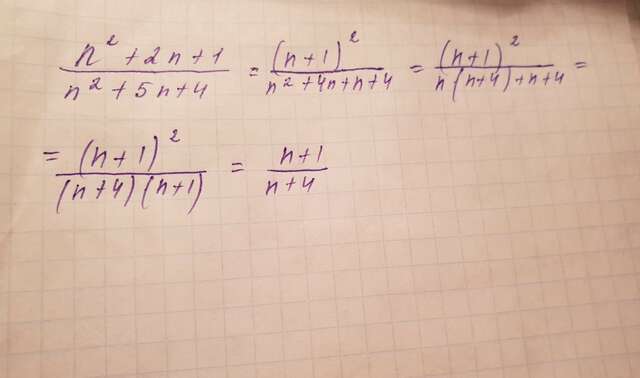 (n² + 2n + 1)/(n² + 5n + 4) = (n + 1)²/(n² + 4n + n + 4) = (n + 1)²/(n(n+4) + n + 4) =
= (n + 1)²/((n + 4)(n + 1)) = (n + 1)/(n + 4)